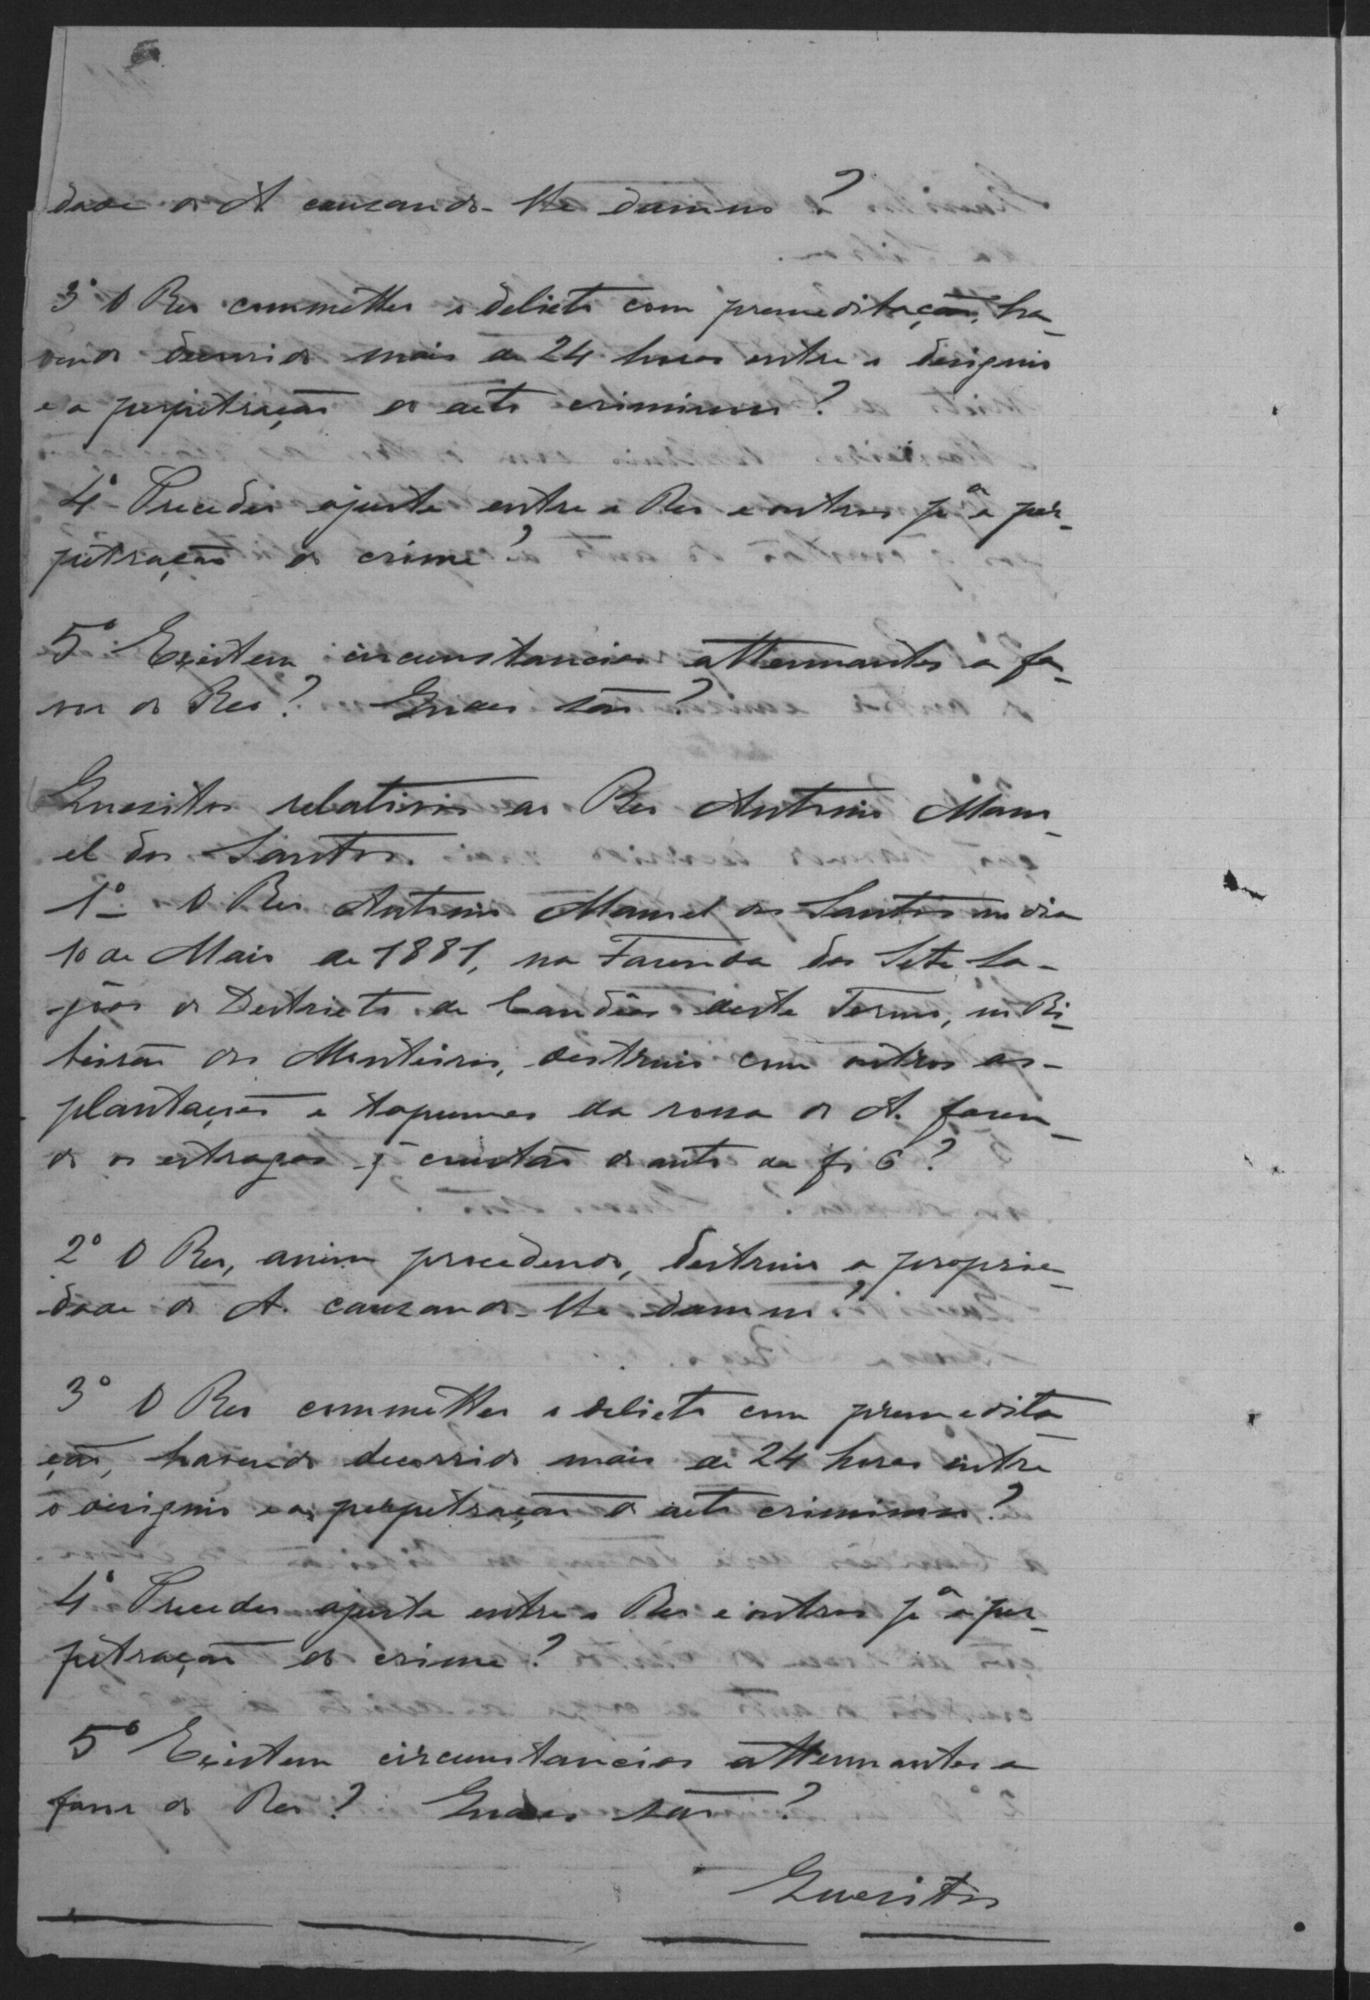 dade do A causando-lhe damno?
3º O Reo commetteu o delicto com premeditação, ha-
vendo decorrido mais de 24 horas entre o designio
e a perpetração do acto criminoso?
4º Precedeu ajuste entre o Reo e outros pª a per-
petração do crime?
5º Existem circumstancias attenuantes a fa-
vor do Reo? Quaes são?
Quesitos relativos ao Reo Antonio Mano-
el dos Santos.
1º O Reo Antonio Manoel dos Santos no dia
10 de Maio de 1881, na Fazenda das Sete La-
gôas do Districto de Candêas deste Termo, no Ri-
beirão dos Monteiros, destruio com outros as
plantações e tapumes da rossa do A. fasen-
do os estragos q̃ constão do auto de fs 6?
2º O Reo, assim procedendo, destruio a proprie-
dade do A. causando-lhe damno?
3º O Reo commetteu o delicto com premedita-
ção, havendo decorrido mais de 24 horas entre
o designio e a perpetração do acto criminoso?
4º Precedeu ajuste entre o Reo e outros pª a per-
petração do crime?
5º Existem circumstancias attenuantes a
favor do Reo? Quaes são?
Quesitos